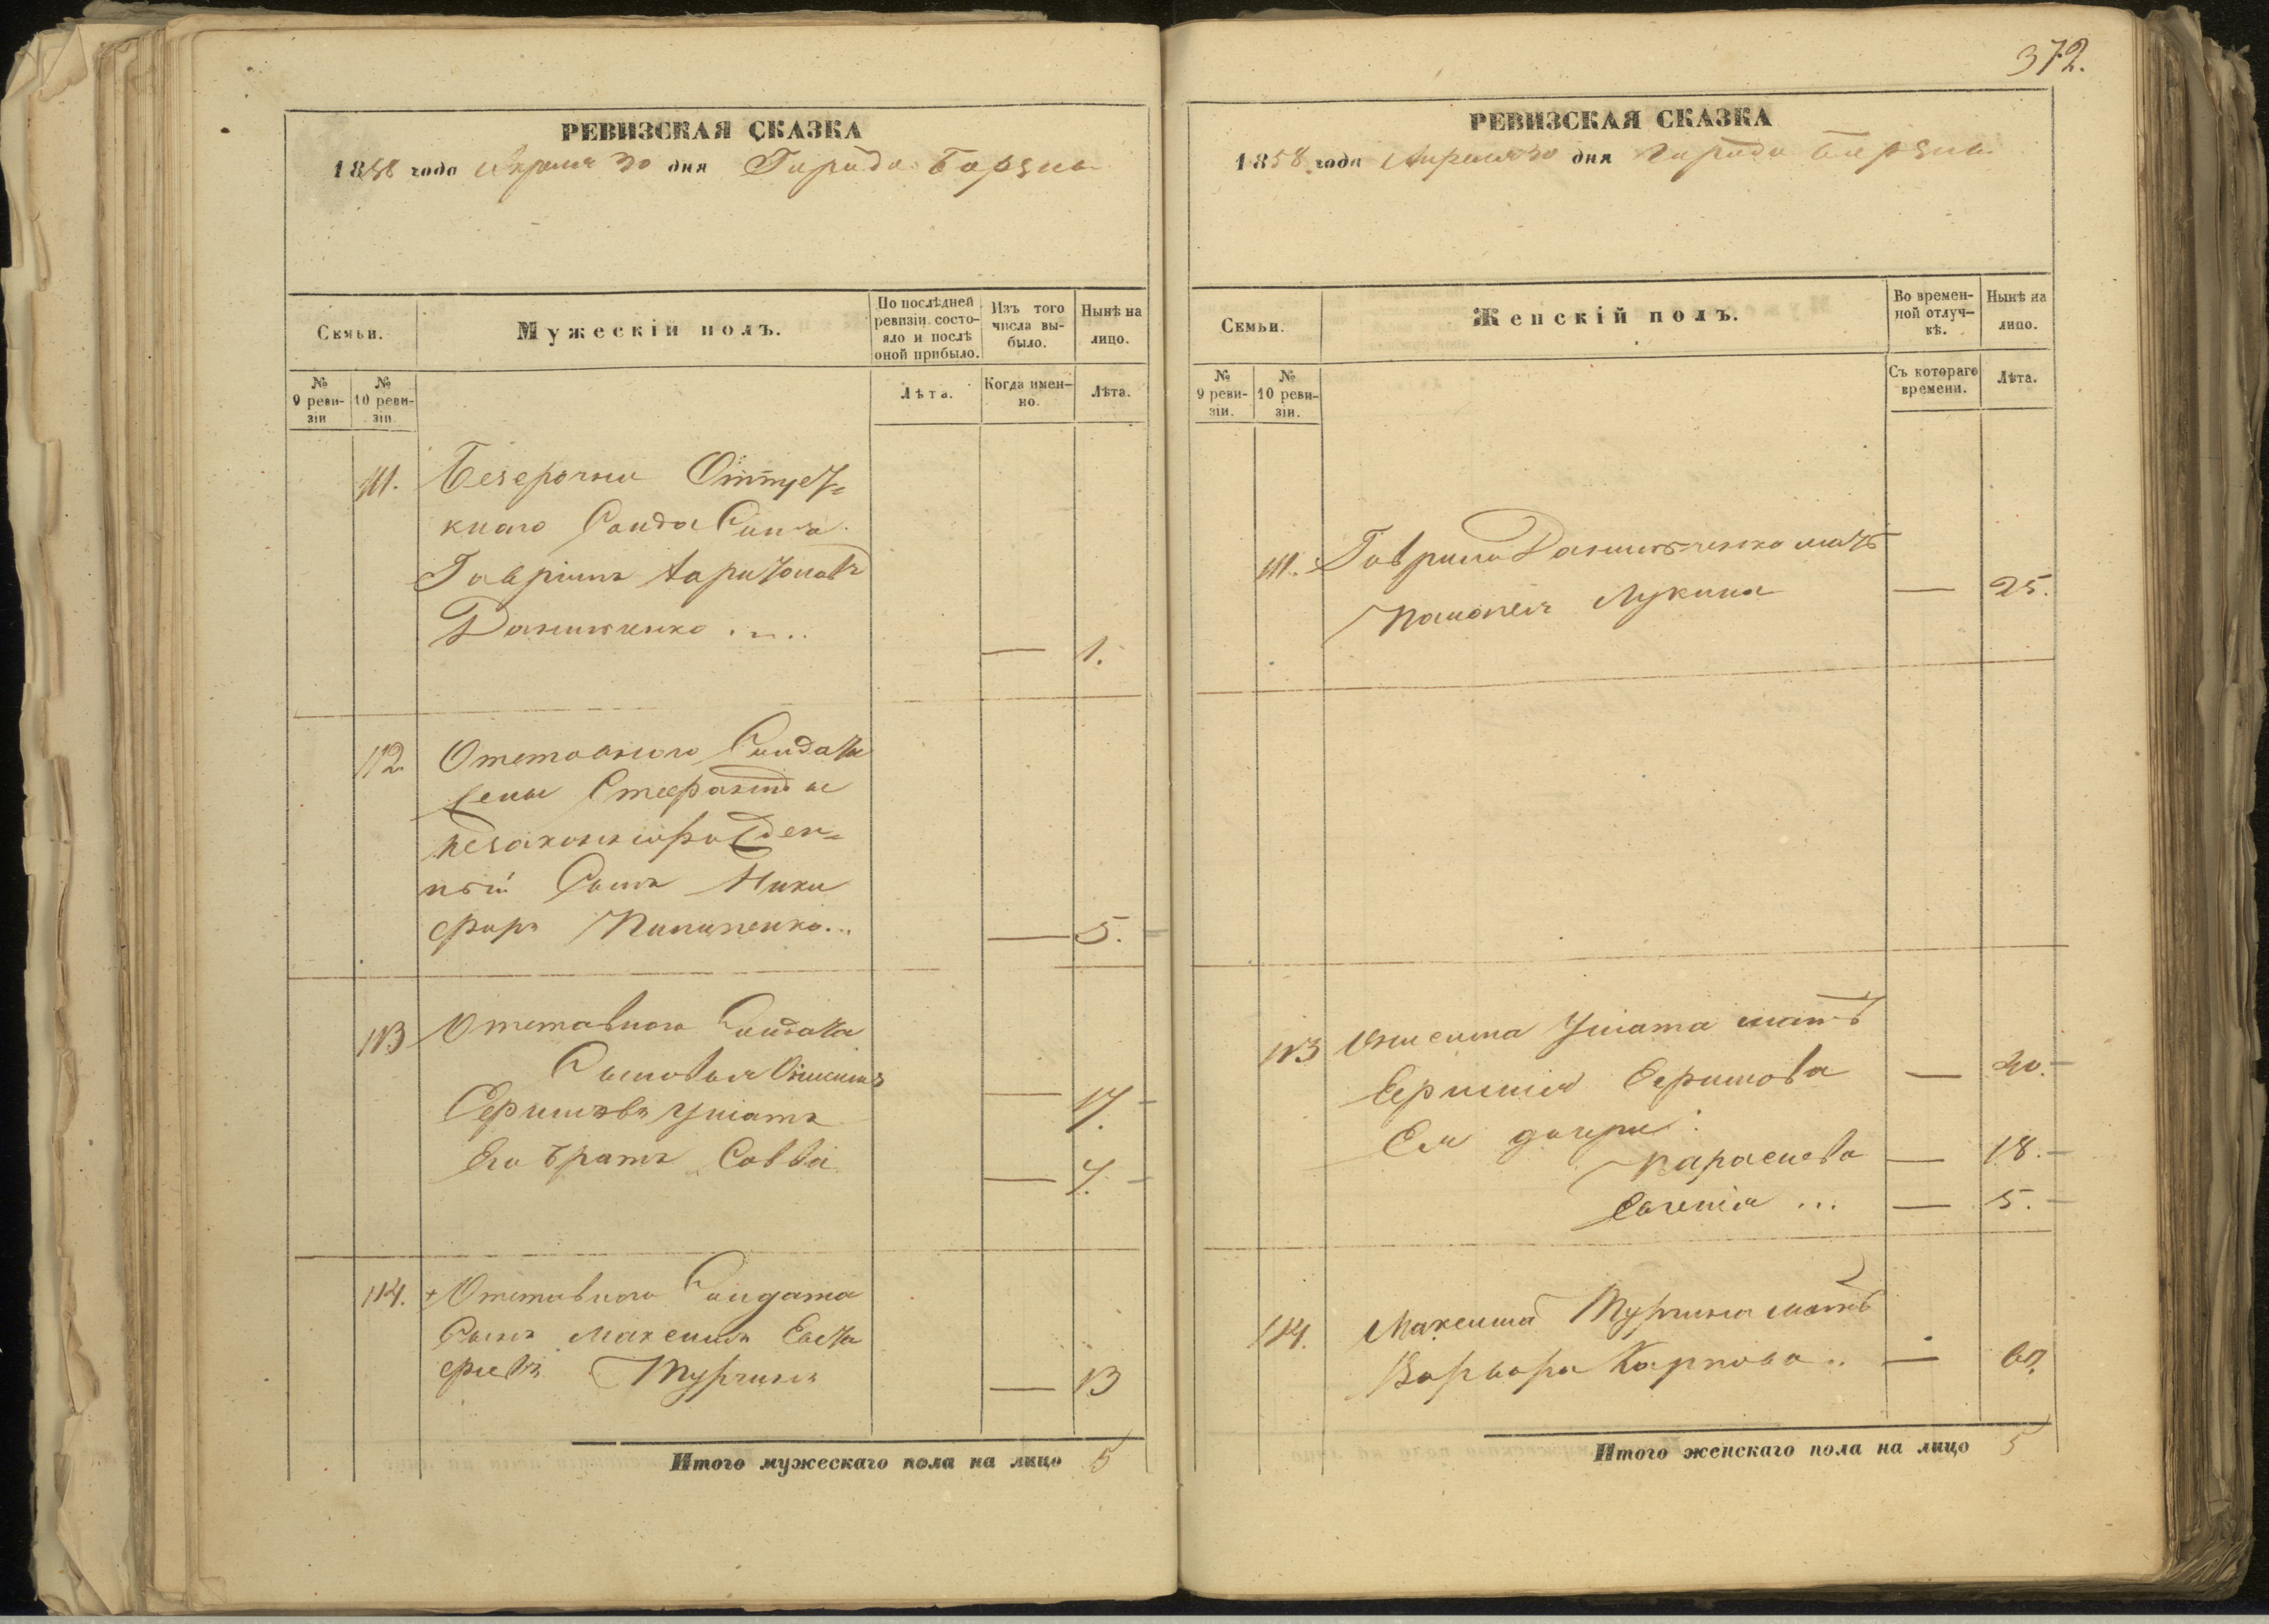 372.
РЕВИЗСКАЯ СКАЗКА
1858 года Апреля 30 дня Города Борзны
Семьи.
Мужескій полъ.
По послѣдней ревизіи состояло и послѣ оной прибыло.
Изъ того числа выбыло.
Нынѣ на лицо.
№ 9 ревизіи
№ 10 ревизіи.
Лѣта.
Когда именно.
Лѣта.
111. Безсрочно Отпус=
кнаго Солда Сынъ
Гавріилъ Харитоновъ
Данильченко — 1.
112. Отставнаго Солдата
жены
незаконнорожден=
ный Сынъ Ники
форъ Пилипенко... — 5.
113 Отставнаго Солдата
Сыновья Онисимъ
Ушатъ — 17.
Его братъ Савва — 7.
114. + Отставнаго Солдата
Сынъ Максимъ Евста
фіевъ Турчинъ — 13
Итого мужескаго пола на лицо 5
РЕВИЗСКАЯ СКАЗКА
1858 года Апреля 30 дня Города Борзны
Семьи.
Женскій полъ.
Во временной отлучкѣ.
Нынѣ на лицо.
№ 9 ревизіи.
№ 10 ревизіи.
Съ котораго времени.
Лѣта.
111. Гаврила Данильченко мать
Лукина — 25.
113 Онисима Ушата мать
— 40.
Ея дочери:
— 18.
Евгенія ... — 5.
114. Максима Турчина мать
Варвара Карпова.. — 60.
Итого женскаго пола на лицо 5